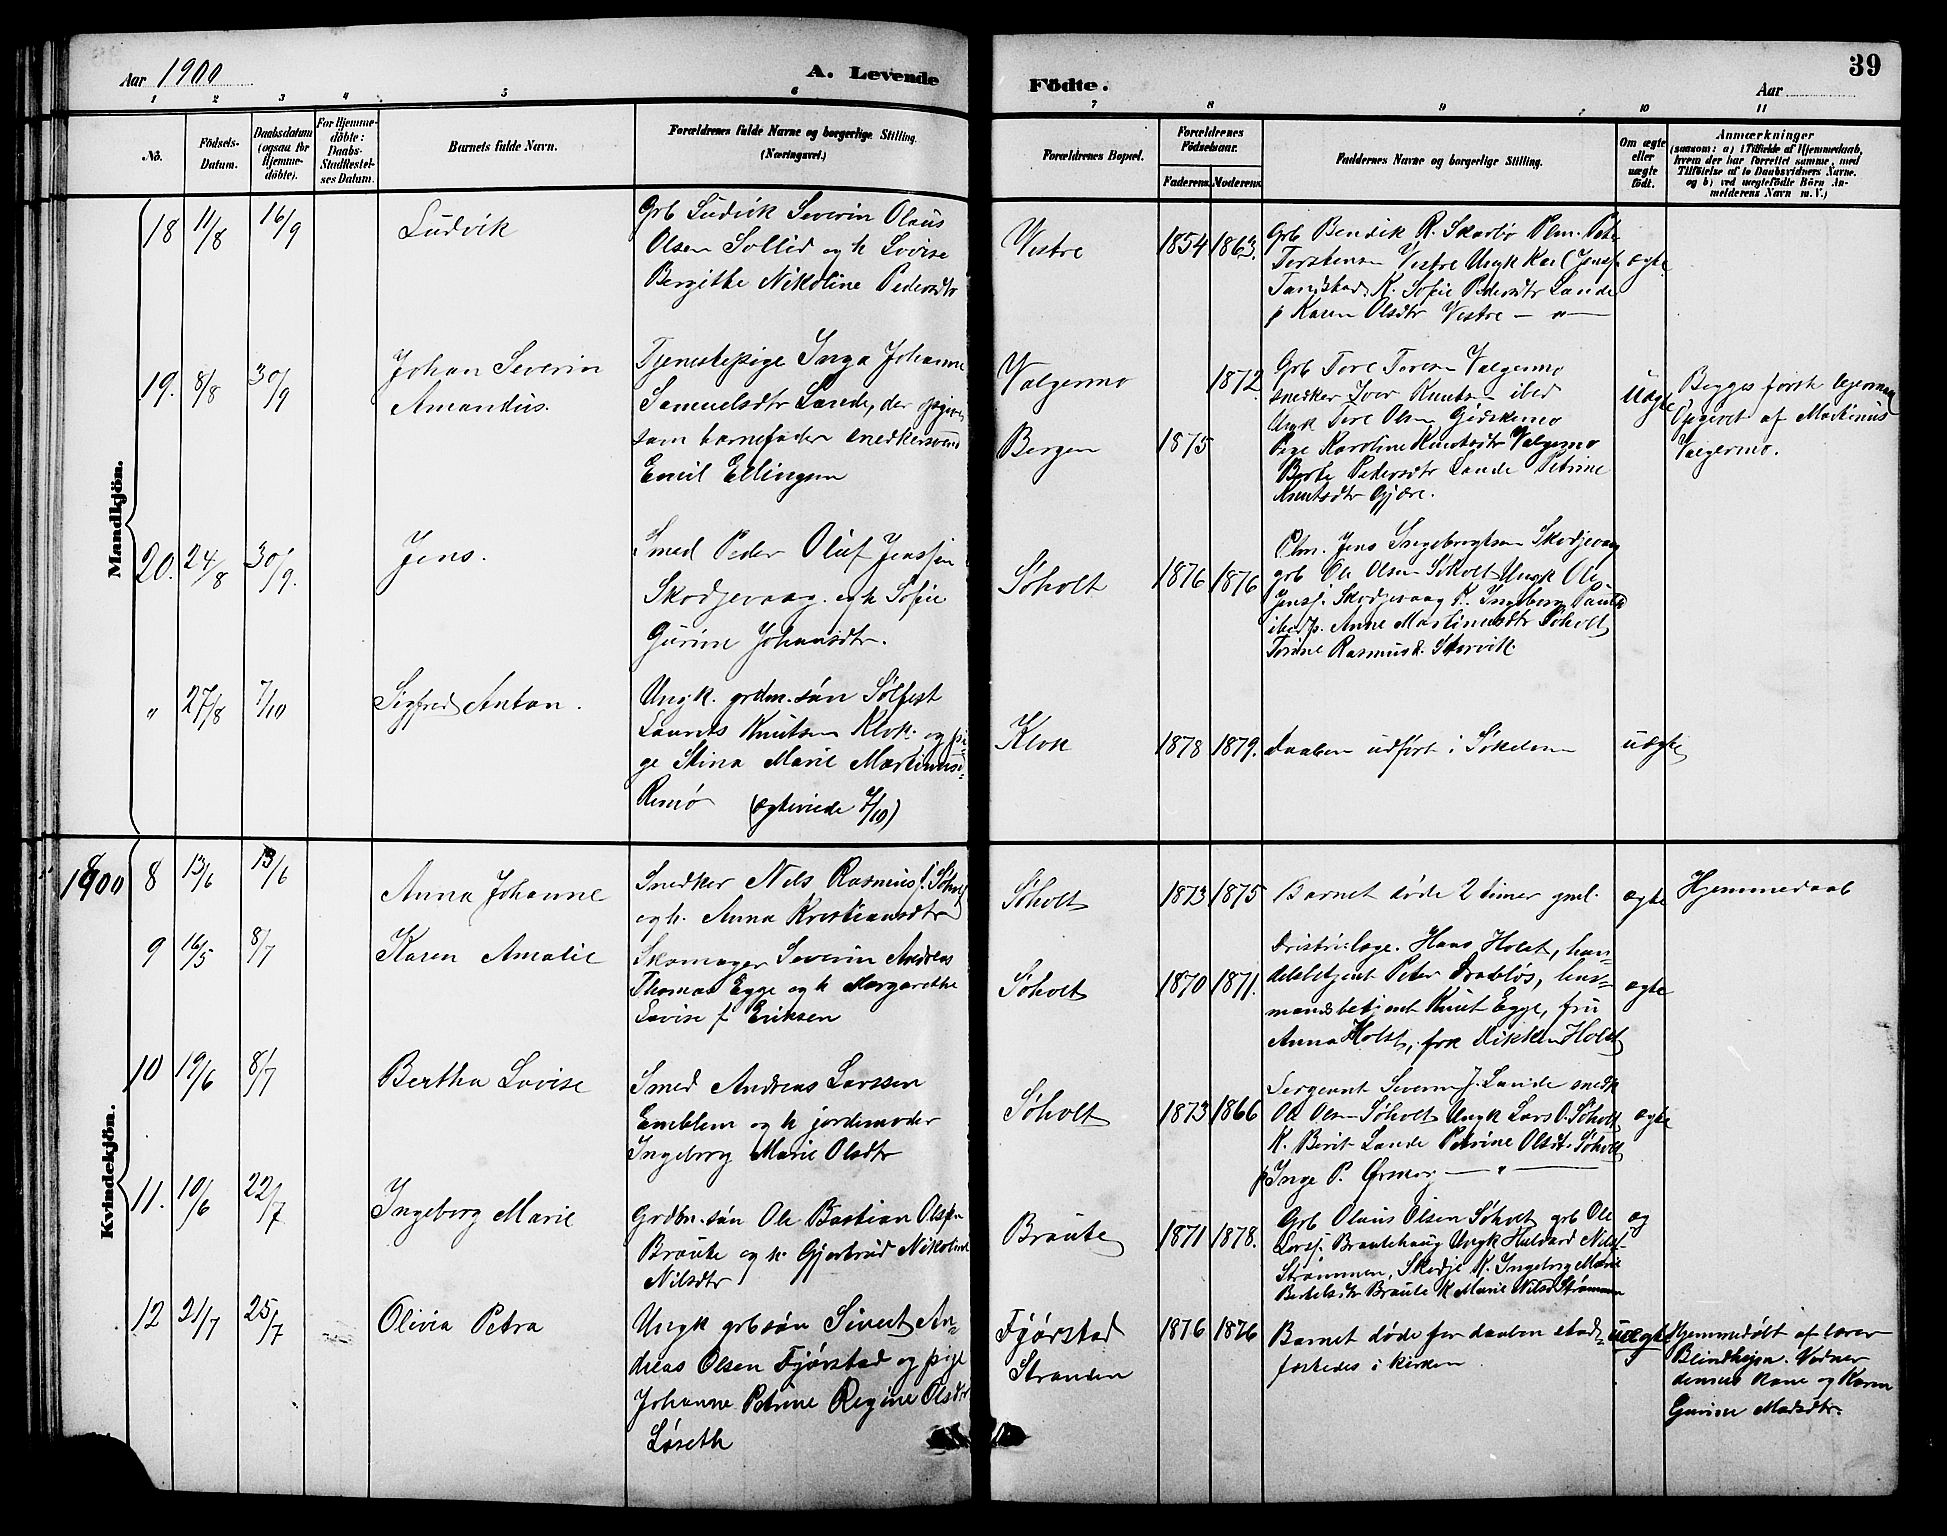 Aar 1900
A. Levende
Födte.
Aar
39
1 2 3 4 5 6 7 8 9 10 11
Nò.
Födsels-
Datum.
Daabsdatum
(ogsaa for
Hjemme-
döbte).
For Hjemme-
döbte:
Daabs-
Stadfæstel-
ses Datum.
Barnets fulde Navn.
Forældrenes fulde Navne og borgerlige Stilling.
(Næringsvei.)
Forældrenes Bopæl.
Forældrenes
Födselsaar.
Faderens. Moderens.
Faddernes Navne og borgerlige Stilling.
Om ægte
eller
uægte
födt.
Anmærkninger
(saasom: a) i Tilfælde af Hjemmedaab,
hvem der har forrettet samme, med
Tilföielse af to Daabsvidners Navne.
og b) ved uægtefödte Börn An-
melderens Navn m. V.)
Mandkjön.
18 11/8 16/9
Ludvik
Grb Ludvik Severin Olaus
Olsen Sollid og h Lovise
Bergithe Nikoline Pedersdtr
Vestre
1854 1863.
Grb Bendik R. Skarbø Plm. Peter
Torstensen Vestre Ungk Karl Jensf.
Tandstad, K. Sofie Pedersdtr Lande
p Karen Olsdtr Vestre — " —
ægte
19. 8/8 30/9
Johan Severin
Amandus.
Tjenestepige Inga Johanne
Samuelsdtr Lande, der opgiver
som barnefader snedkersvend
Emil Ellingsen
Valgermo
Bergen
1872
1875
Grb Tore Toresen Valgermo
snedker Iver Knuts - ibid
Ungk Tore Olsen Gjeskemo
Pige Karoline Knutsdtr Valgermo
Berte Pedersdtr Lande Petrine
Knutsdtr Gjære.
Uægte
Begges første lejermaal
Opgivet af Martinus
Valgermo.
20. 24/8 30/9.
Jens.
Smed Peder Oluf Jenssen
Skodjevaag. og h Sofie
Gurine Johansdtr.
Søholt
1876 1876
Plm. Jens Ingebrigtsen Skodjevaag
grb Ole Olsen Søholt Ungk Ole
Jensf. Skodjevaag K. Ingeborg Pauls
ibid p. Anne Martinusdtr Søholt
Torine Rasmusd. Skorvik.
" 27/8 7/10
Sigfred Anton.
Ungk. grdm. søn Sølfest
Laurits Knutsen Klok. og pi-
ge Stina Marie Martinusd.
Remø (ægteviede 7/10)
Klok
1878 1879.
Daaben udført i Søkelven
uægte
Kvindekjön.
1900 8 13/6 13/6
Anna Johanne
Snedker Nils Rasmusf. Søholt
og h. Anna Kristiansdtr
Søholt
1873 1875
Barnet døde 2 timer gml.
ægte
Hjemmedaab
9 16/5 8/7
Karen Amalie
Skomager Severin Andreas
Thomas Egge og h Margarethe
Lovise f Eriksen
Søholt
1870 1871.
Distriktslæge. Hans Holst, han-
delsbetjent Peter Drabløs, lens-
mandsbetjent Knut Egge, fru
Anna Holst, frk Dikken Holst
ægte
10 19/6 8/7
Bertha Lovise
Smed Andreas Larssen
Emblem og h jordemoder
Ingeborg Marie Olsdtr
Søholt
1873 1866
Sergeant Severin J. Lande snedk
Ole Olsen Søholt Ungk Lars O. Søholt
K. Berit Lande Petrine Olsdt. Søholt
p Inge P. Ørmor — " —
ægte
11. 10/6 22/7
Ingeborg Marie
Grdbr. søn Ole Bastian Olsen
Braute og h. Gjertrud Nikoline
Nilsdtr
Braute
1871 1878.
Grb Olaus Olsen Søholt grb Ole
Larsf. Brautehaug Ungk Halvard Nilsf.
Strømmen, Skodje K. Ingeborg Marie
Bertelsdtr Braute K Marie Nilsd Strømmen
æg
12 21/7 25/7
Olivia Petra
Ungk grb søn Sivert An-
dreas Olsen Fjørstad og pige
Johanne Petrine Regine Olsdtr
Løseth
Fjørstad
Stranden
1876 1876
Barnet døde før daaben stad-
fæstedes i kirken
uægte
Hjemmedøbt af lærer
Blindheim. Vidner
dennes kone og Karen
Gurine Madsdtr.